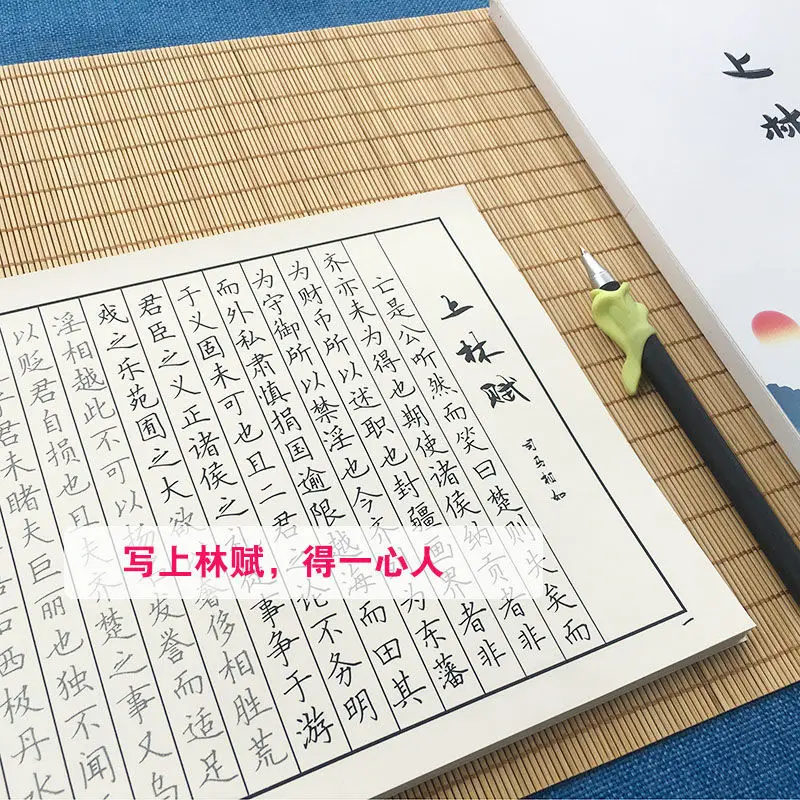 上林
上林赋
司马相如
亡是公听然而笑曰楚则失矣而
齐亦未为得也期使诸侯纳贡者非
为财币所以述职也封疆画界者非
为守御所以禁淫也今齐为东藩
而外私肃慎捐国逾限越海而田其
于义固未可也且二君之论不务明
君臣之义正诸侯之徒事争于游
戏之乐苑囿之大欲奢侈相胜荒
淫相越此不可以扬发誉而适足
以贬君自损也且夫齐楚之事又乌
乎君未睹夫巨丽也独不闻
右西极丹水
写上林赋，得一心人